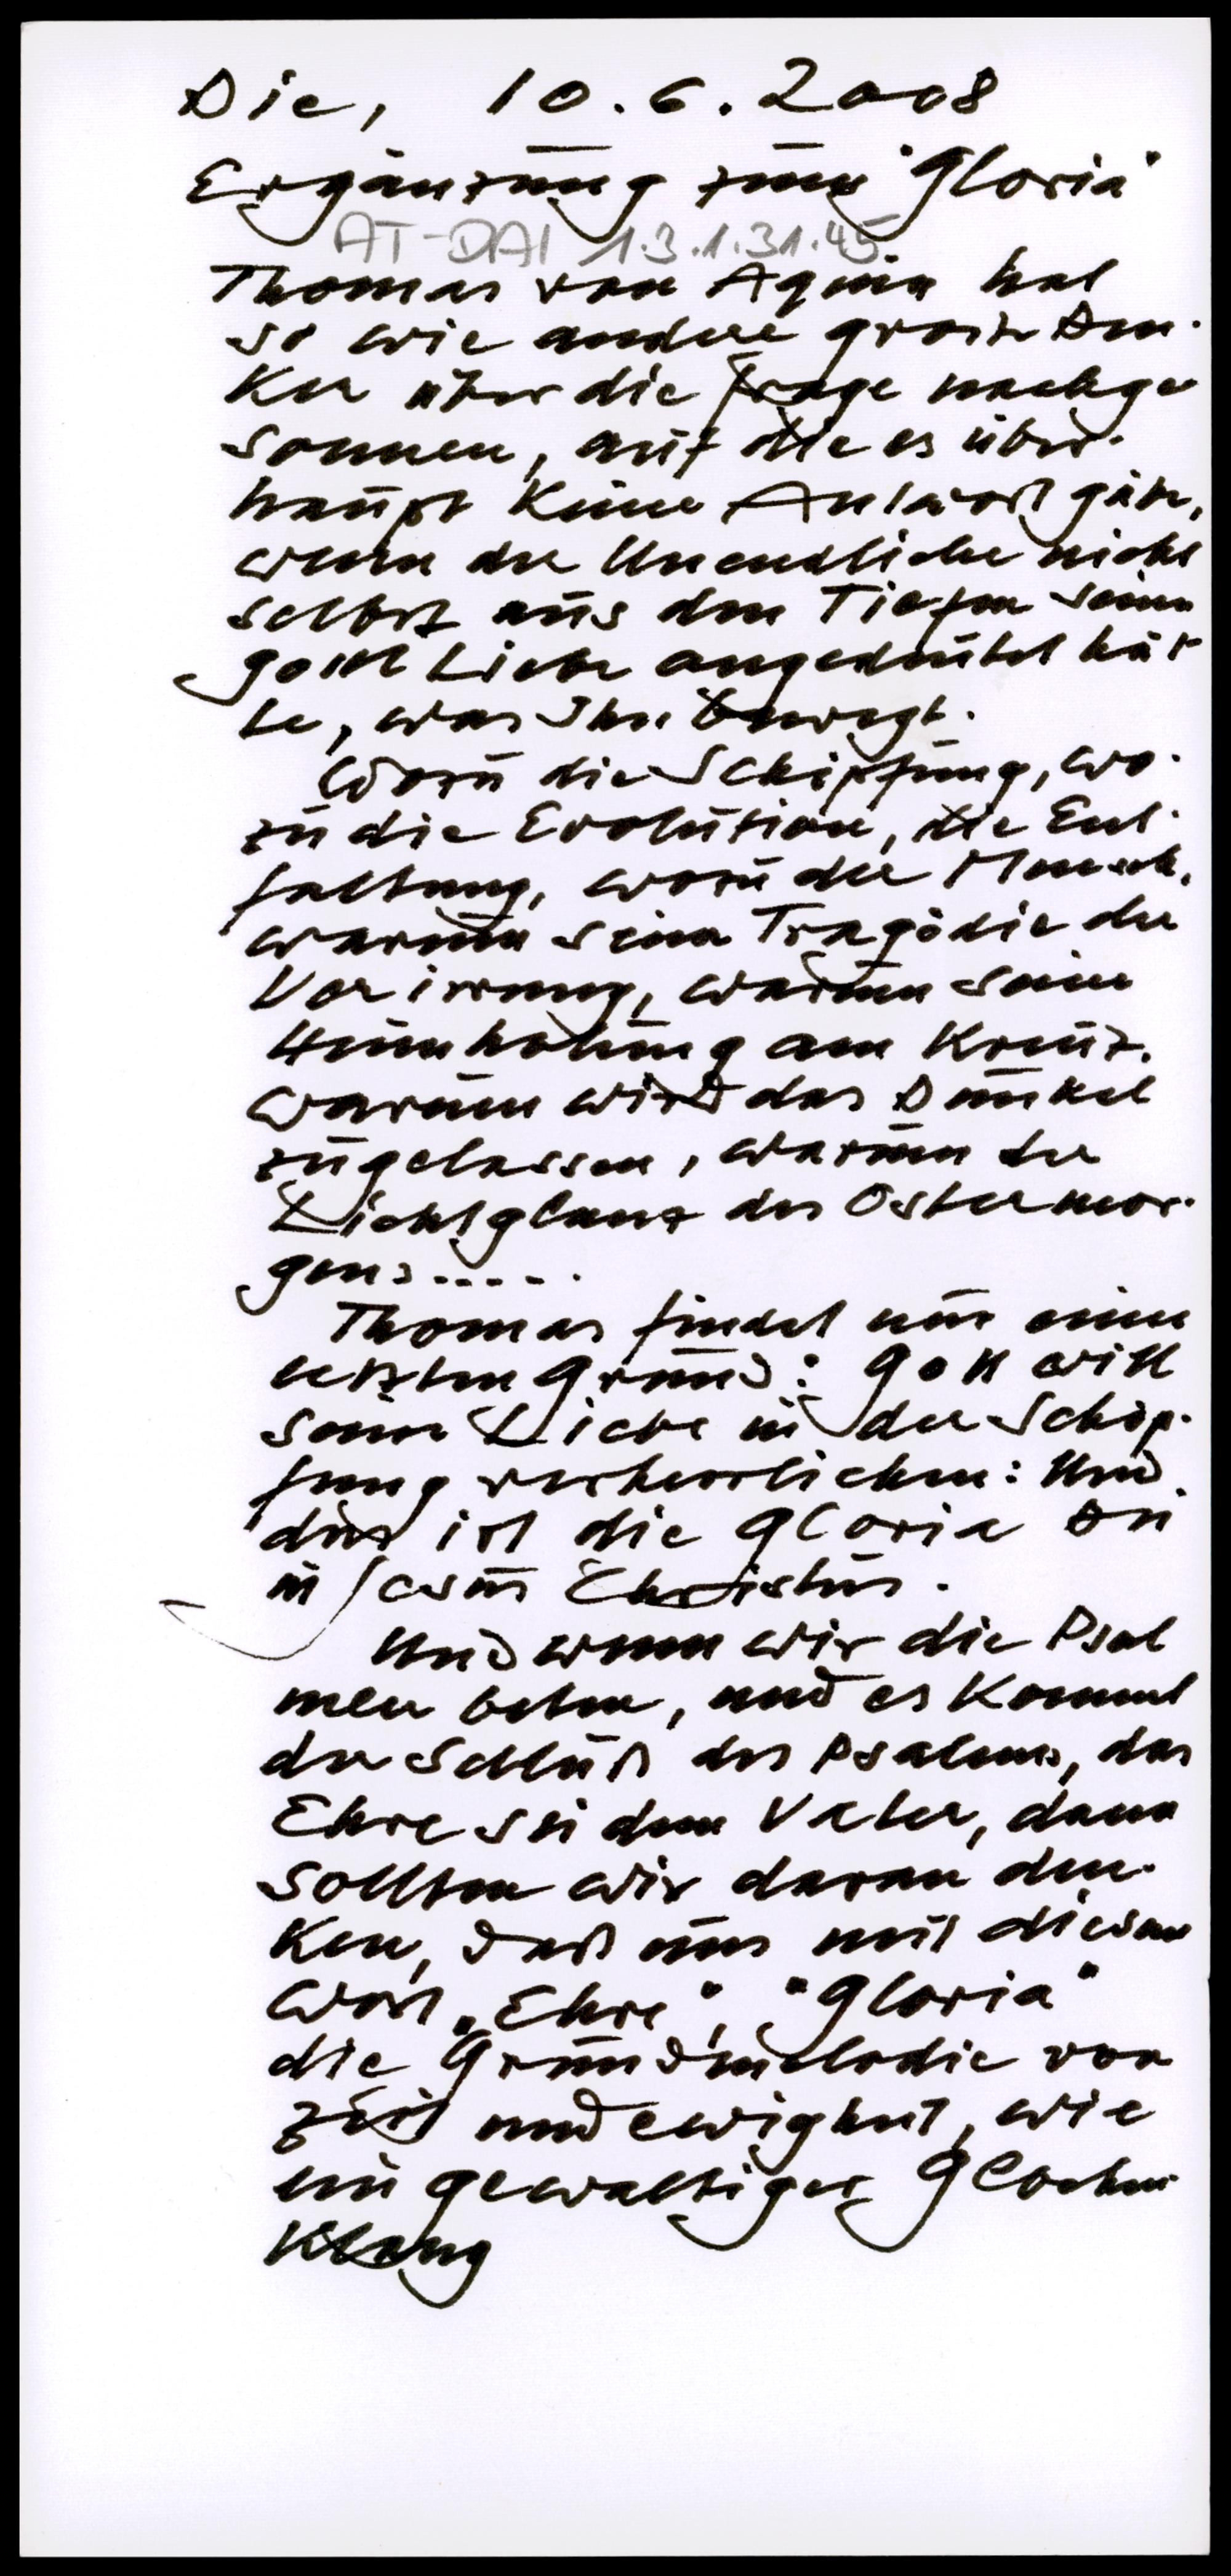 Die, 10.6.2008
Ergänzung zum "Gloria"
AT-DAI 1.3.1.31.45
Thomas von Aquin hat
so wie andere große Den-
ker über die Frage nachge
sonnen, auf die es über-
haupt keine Antwort gäbe,
wenn der Unendliche nicht
selbst aus den Tiefen seiner
Liebe angedeutet hät
te, was Ihn bewegt.
Wozu die Schöpfung, wo-
zu die Evolution, die Ent-
faltung, wozu der Mensch,
warum seine Tragödie der
Verirrung, warum seine
Heimholung am Kreuz.
Warum wird das Dunkel
zugelassen, warum der
Lichtglanz des Ostermor-
gens.....
Thomas findet nur einen
letzten Grund: Gott will
seine Liebe in der Schöp-
fung verherrlichen: Und
dies ist die Gloria Dei
in Jesus Christus.
Und wenn wir die Psal
men beten, und es kommt
der Schluß des Psalms, das
Ehre sei dem Vater, dann
sollten wir daran den-
ken, daß uns mit diesem
Wort "Ehre", "Gloria"
die Grundmelodie von
Zeit und Ewigkeit, wie
ein gewaltiger Glocken-
klang